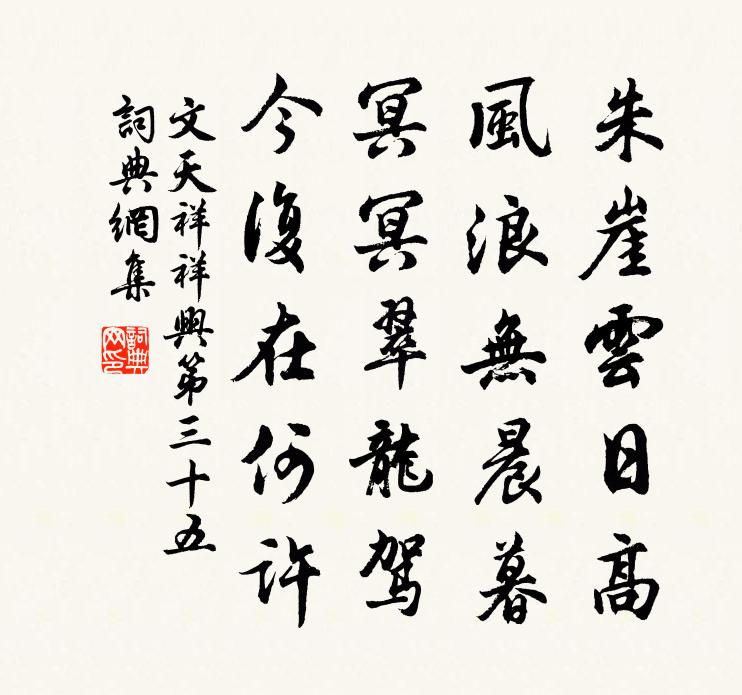 朱崖雲日高
風浪無晨暮
冥冥翠龍駕
今復在何許
文天祥祥興第三十五
詞典網集
詞典網印